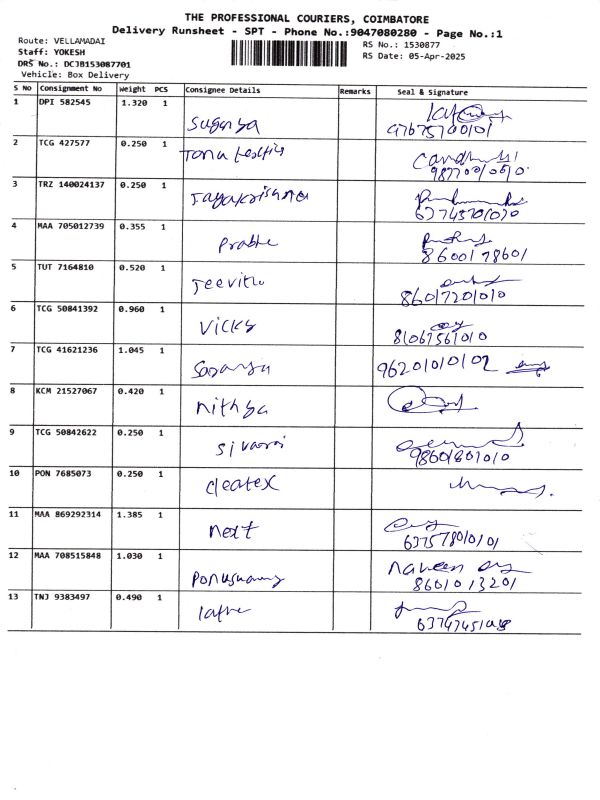 THE PROFESSIONAL COURIERS, COIMBATORE
Delivery Runsheet - SPT - Phone No.:9047080280 - Page No.:1
Route: VELLAMADAI
RS No.: 1530877
Staff: YOKESH
RS Date: 05-Apr-2025
DRS No.: DCJB153087701
Vehicle: Box Delivery
S No Consignment No Weight PCS Consignee Details Remarks Seal & Signature
1 DPI 582545 1.320 1 Suganya
2 TCG 427577 0.250 1
3 TRZ 140024137 0.250 1 Jayakrishna
4 MAA 705012739 0.355 1 Prabhu 8600178601
5 TUT 7164810 0.520 1 Jeevitha 86017201010
6 TCG 50841392 0.960 1 Vicky 81067561010
7 TCG 41621236 1.045 1 Saranya 96201010102
8 KCM 21527067 0.420 1 nithya
9 TCG 50842622 0.250 1 Sivaraj
10 PON 7685073 0.250 1 cleatex
11 MAA 869292314 1.385 1 next
12 MAA 708515848 1.030 1 Ponusamy naveen 8601013201
13 TNJ 9383497 0.490 1